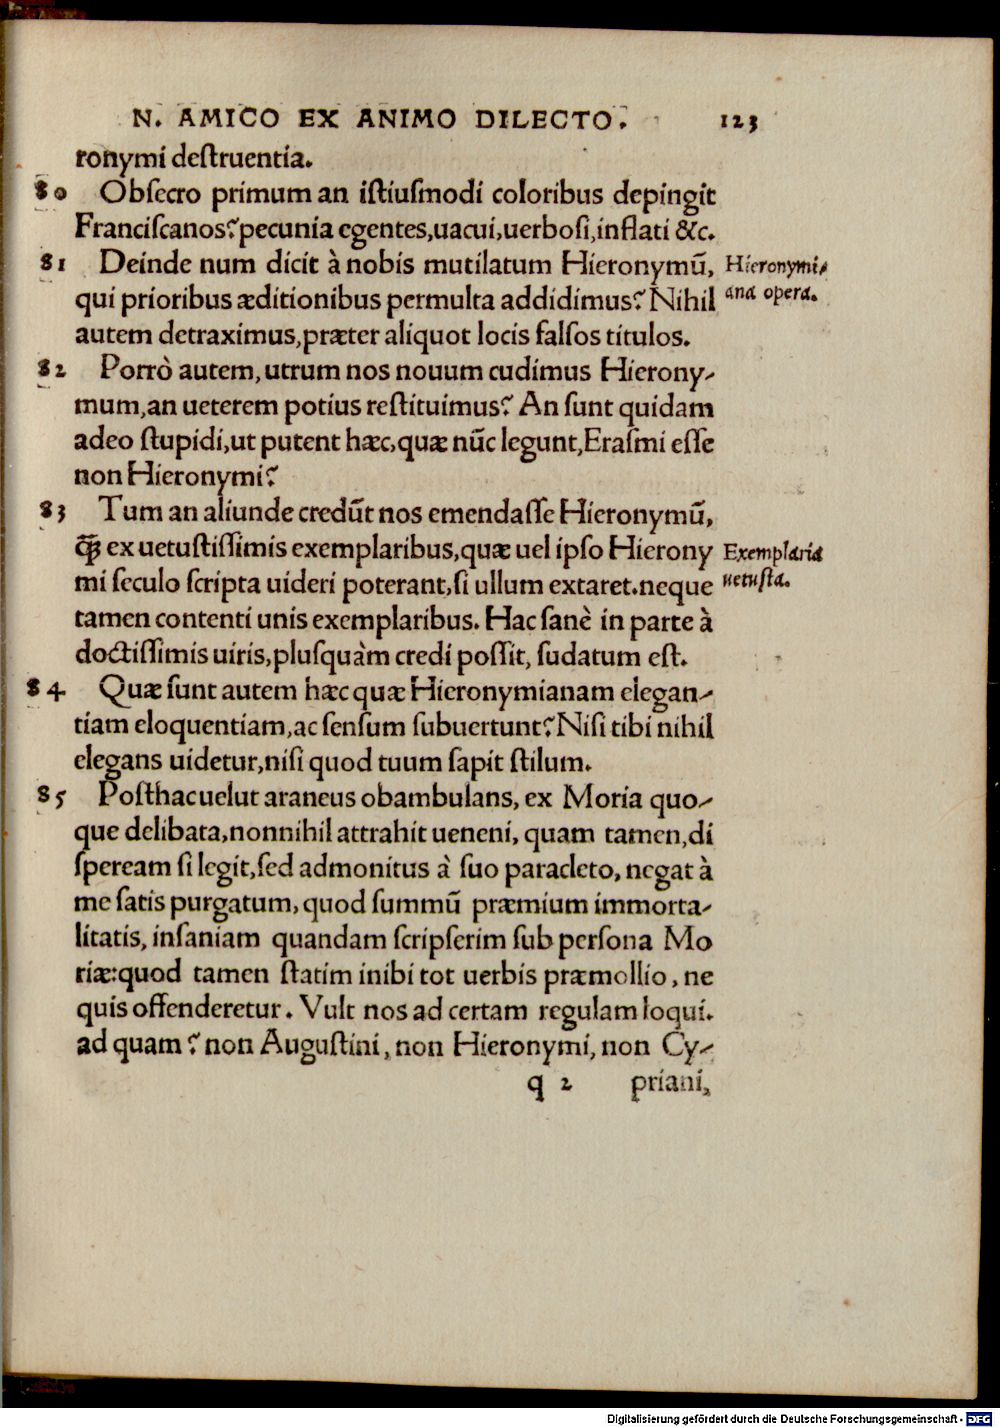 N. AMICO EX ANIMO DILECTO. 123
ronymi destruentia.
80 Obsecro primum an istiusmodi coloribus depingit
Franciscanos? pecunia egentes, uacui, uerbosi, inflati &c.
81 Deinde num dicit à nobis mutilatum Hieronymũ,
Hieronymi-
qui prioribus æditionibus permulta addidimus? Nihil
ana opera.
autem detraximus, præter aliquot locis falsos titulos.
82 Porrò autem, utrum nos nouum cudimus Hierony-
mum, an ueterem potius restituimus? An sunt quidam
adeo stupidi, ut putent hæc, quæ nũc legunt, Erasmi esse
non Hieronymi?
83 Tum an aliunde credũt nos emendasse Hieronymũ,
ꝙ̃ ex uetustissimis exemplaribus, quæ uel ipso Hierony
Exemplaria
mi seculo scripta uideri poterant, si ullum extaret. neque
uetusta.
tamen contenti unis exemplaribus. Hac sanè in parte à
doctissimis uiris, plusquàm credi possit, sudatum est.
84 Quæ sunt autem hæc quæ Hieronymianam elegan-
tiam eloquentiam, ac sensum subuertunt? Nisi tibi nihil
elegans uidetur, nisi quod tuum sapit stilum.
85 Posthac uelut araneus obambulans, ex Moria quo-
que delibata, nonnihil attrahit ueneni, quam tamen, di
speream si legit, sed admonitus à suo paracleto, negat à
me satis purgatum, quod summũ præmium immorta-
litatis, insaniam quandam scripserim sub persona Mo
riæ: quod tamen statim inibi tot uerbis præmollio, ne
quis offenderetur. Vult nos ad certam regulam loqui.
ad quam? non Augustini, non Hieronymi, non Cy-
q 2 priani,
Digitalisierung gefördert durch die Deutsche Forschungsgemeinschaft - DFG